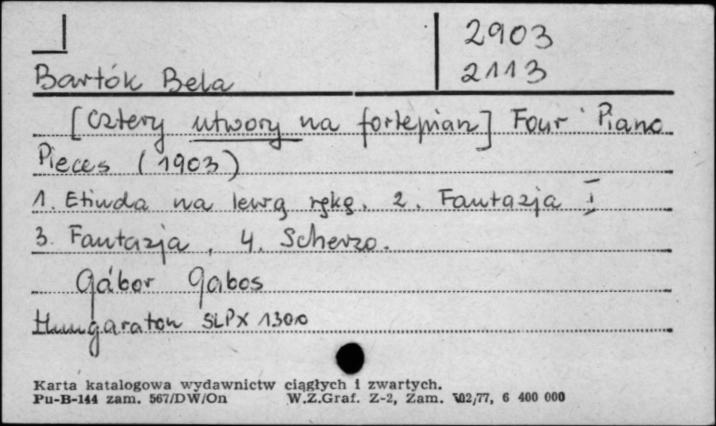 2903
2113
Bartók Bela
[cztery utwory na fortepian] Four Piano
Pieces (1903)
1. Etiuda na lewą rękę. 2. Fantazja I
3. Fantazja, 4. Scherzo.
Gábor Gabos
Hungaraton SLPX 1300
Karta katalogowa wydawnictw ciągłych i zwartych.
Pu-B-144 zam. 567/DW/On W.Z.Graf. Z-2, Zam. 102/77, 6 400 000